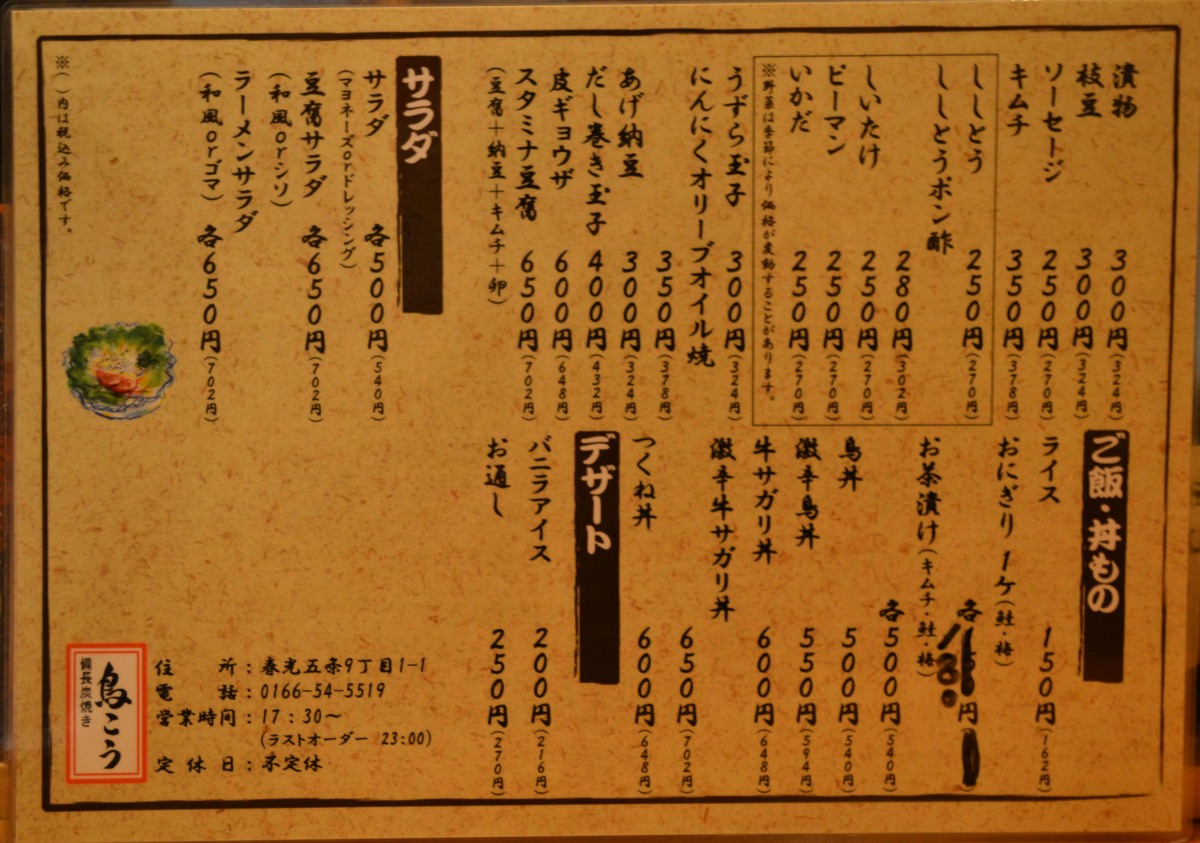 漬物 300円(324円)
枝豆 300円(324円)
ソーセージ 250円(270円)
キムチ 350円(378円)
ししとう 250円(270円)
ししとうポン酢
280円(302円)
しいたけ 250円(270円)
ピーマン 250円(270円)
いかだ 250円(270円)
※野菜は季節により価格が変動することがあります。
うずら玉子 300円(324円)
にんにくオリーブオイル焼
350円(378円)
あげ納豆 300円(324円)
だし巻き玉子 400円(432円)
皮ギョウザ 600円(648円)
スタミナ豆腐 650円(702円)
(豆腐+納豆+キムチ+卵)
サラダ
サラダ 各500円(540円)
(マヨネーズorドレッシング)
豆腐サラダ 各650円(702円)
(和風orシソ)
ラーメンサラダ
(和風orゴマ) 各650円(702円)
※( )内は税込み価格です。
ご飯・丼もの
ライス 150円(162円)
おにぎり 1ケ(鮭・梅)
各180円
お茶漬け(キムチ・鮭・梅)
各500円(540円)
鳥丼 500円(540円)
激辛鳥丼 550円(594円)
牛サガリ丼 600円(648円)
激辛牛サガリ丼
650円(702円)
つくね丼 600円(648円)
デザート
バニラアイス 200円(216円)
お通し 250円(270円)
備長炭焼き
鳥こう
住所:春光五条9丁目1-1
電話:0166-54-5519
営業時間:17:30〜
(ラストオーダー 23:00)
定休日:不定休